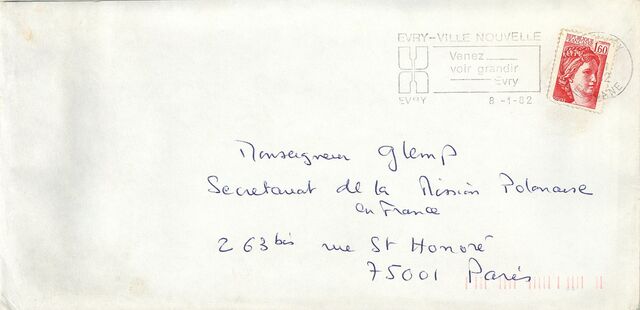 EVRY-VILLE NOUVELLE
Venez
voir grandir
Evry
EVRY 8-1-82
1,60
Monseigneur Glemp
Secretariat de la Mission Polonaise
en France
263 bis rue St Honoré
75001 Paris